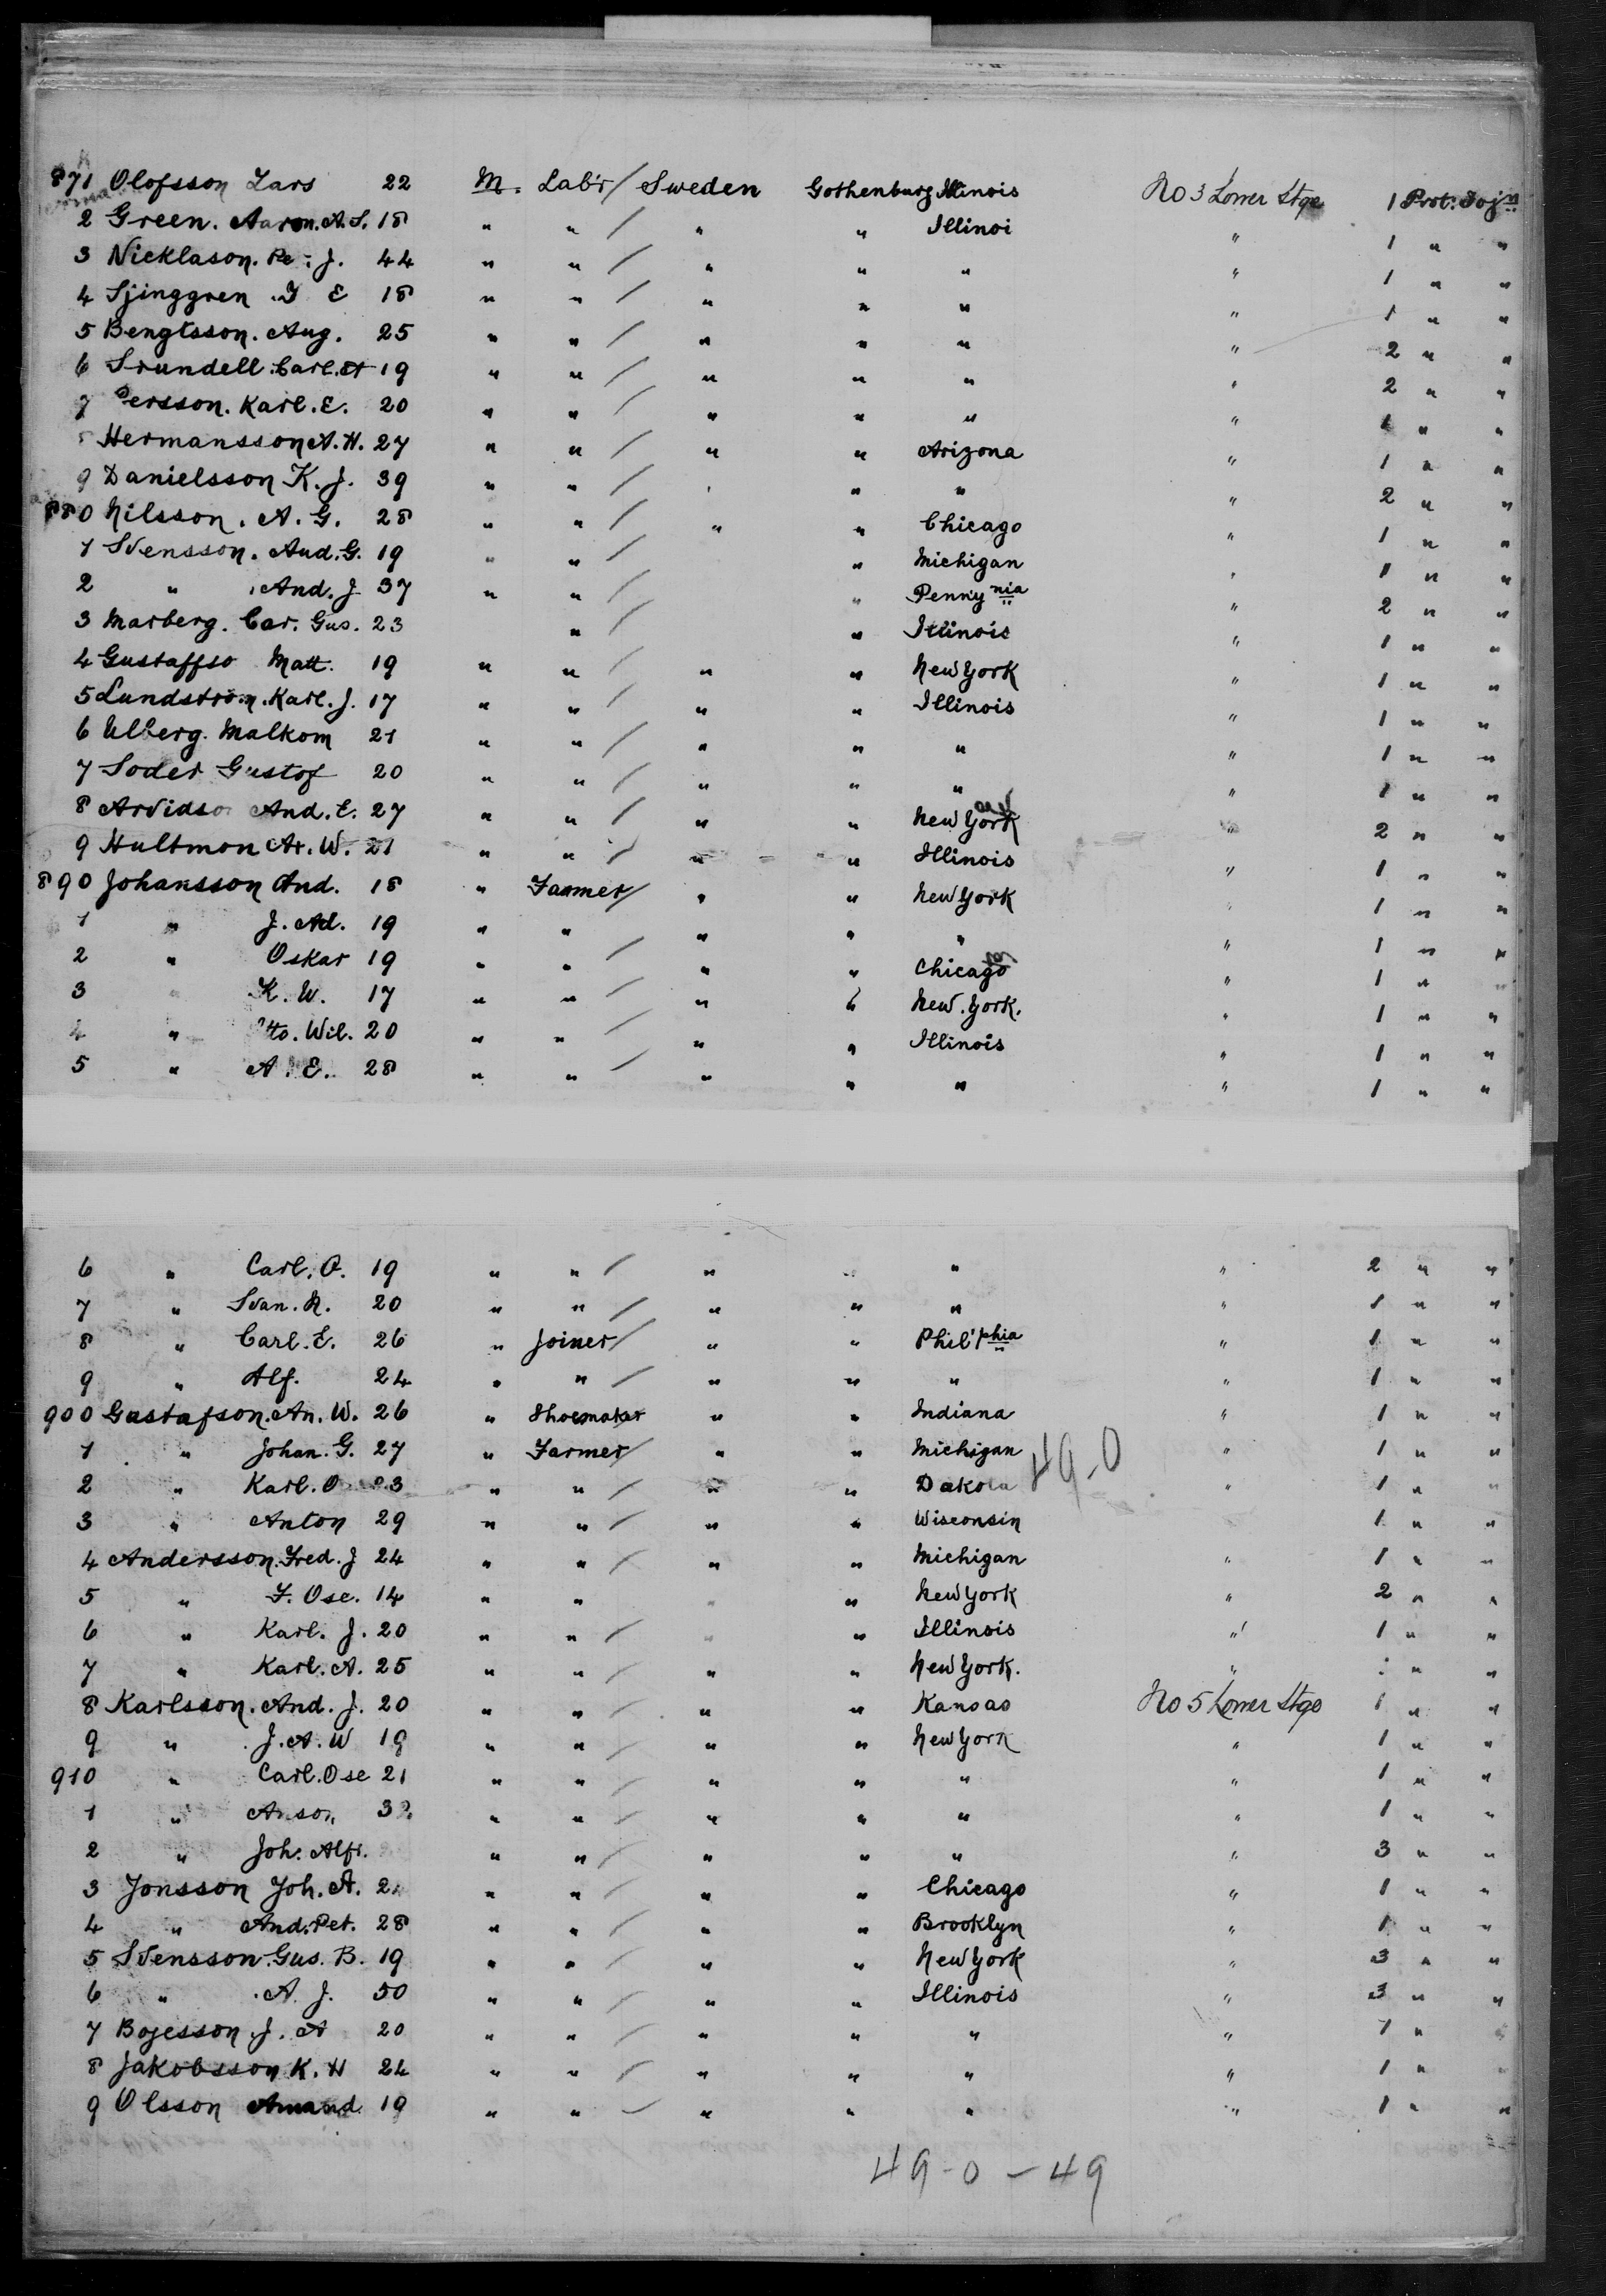 871 Olofsson Lars 22 M. Lab'r / Sweden Gothenburg Illinois No 3 Lower Stge 1 Prot. Soj<sup>n</sup>
2 Green. Aaron. A. S. 18 " " / " " Illinoi " 1 " "
3 Nicklason. Pe. J. 44 " " / " " " " 1 " "
4 Sjinggren . J E 18 " " / " " " " 1 " "
5 Bengtsson. Aug. 25 " " / " " " " 2 " "
6 Srundell. Carl. A 19 " " / " " " " 2 " "
7 Persson. Karl. E. 20 " " / " " " " 1 " "
8 Hermansson A. H. 27 " " / " " Arizona " 1 " "
9 Danielsson K. J. 39 " " / " " " " 2 " "
880 Nilsson. A. G. 28 " " / " " Chicago " 1 " "
1 Svensson. Aud. G. 19 " " / " Michigan " 1 " "
2 " And. J. 37 " " / " Penny nia " 2 " "
3 Marberg. Car. Gus. 23 " / " Illinois " 1 " "
4 Gustaffso Matt. 19 " " / " " New York " 1 " "
5 Lundstrom. Karl. J. 17 " " / " " Illinois " 1 " "
6 Ulberg. Malkom 21 " " / " " " " 1 " "
7 Soder Gustof 20 " " / " " " " 1 " "
8 Arvidso And. E. 27 " " / " " New York " 2 " "
9 Hultmon Ar. W. 21 " " / " " Illinois " 1 " "
890 Johansson And. 18 " Farmer / " " New York " 1 " "
1 " J. Ad. 19 " " " " " " 1 " "
2 " Oskar 19 " " / " " Chicago " 1 " "
3 " K. W. 17 " " / " " New. York. " 1 " "
4 " Otto. Wil. 20 " " / " " Illinois " 1 " "
5 " A. E. 28 " " / " " " " 1 " "
6 " Carl. O. 19 " " / " " " " 2 " "
7 " Svan. N. 20 " " / " " " " 1 " "
8 " Carl. E. 26 " Joiner / " " Phil'phia " 1 " "
9 " Alf. 24 " " / " " " " 1 " "
900 Gustafson. An. W. 26 " Shoemaker " " Indiana " 1 " "
1 " Johan. G. 27 " Farmer / " " Michigan 49-0 " 1 " "
2 " Karl. O 3 " " / " " Dakota " 1 " "
3 " Anton 29 " " / " " Wisconsin 1 " "
4 Andersson. Fred. J 24 " " / " " Michigan " 1 " "
5 " F. Osc. 14 " " " " New York " 2 " "
6 " Karl. J. 20 " " / " " Illinois " 1 " "
7 " Karl. A. 25 " " / " " New York. " " "
8 Karlsson. And. J. 20 " " / " " Kansas No 5 Lower Stge 1 " "
9 " J. A. W 19 " " / " " New York " 1 " "
910 " Carl. Osc 21 " " / " " " " 1 " "
1 " Anson 32 " " / " " " " 1 " "
2 " Joh. Alfr. " " / " " " " 3 " "
3 Jonsson Joh. A. " " / " " Chicago " 1 " "
4 " And. Pet. 28 " " / " " Brooklyn " 1 " "
5 Svensson. Gus. B. 19 " " / " " New York " 3 " "
6 " A. J. 50 " " / " " Illinois " 3 " "
7 Bojesson. J. A 20 " " / " " " " 1 " "
8 Jakobsson K. H 24 " " / " " " " 1 " "
9 Olsson Amand. 19 " " / " " " " 1 " "
49-0-49